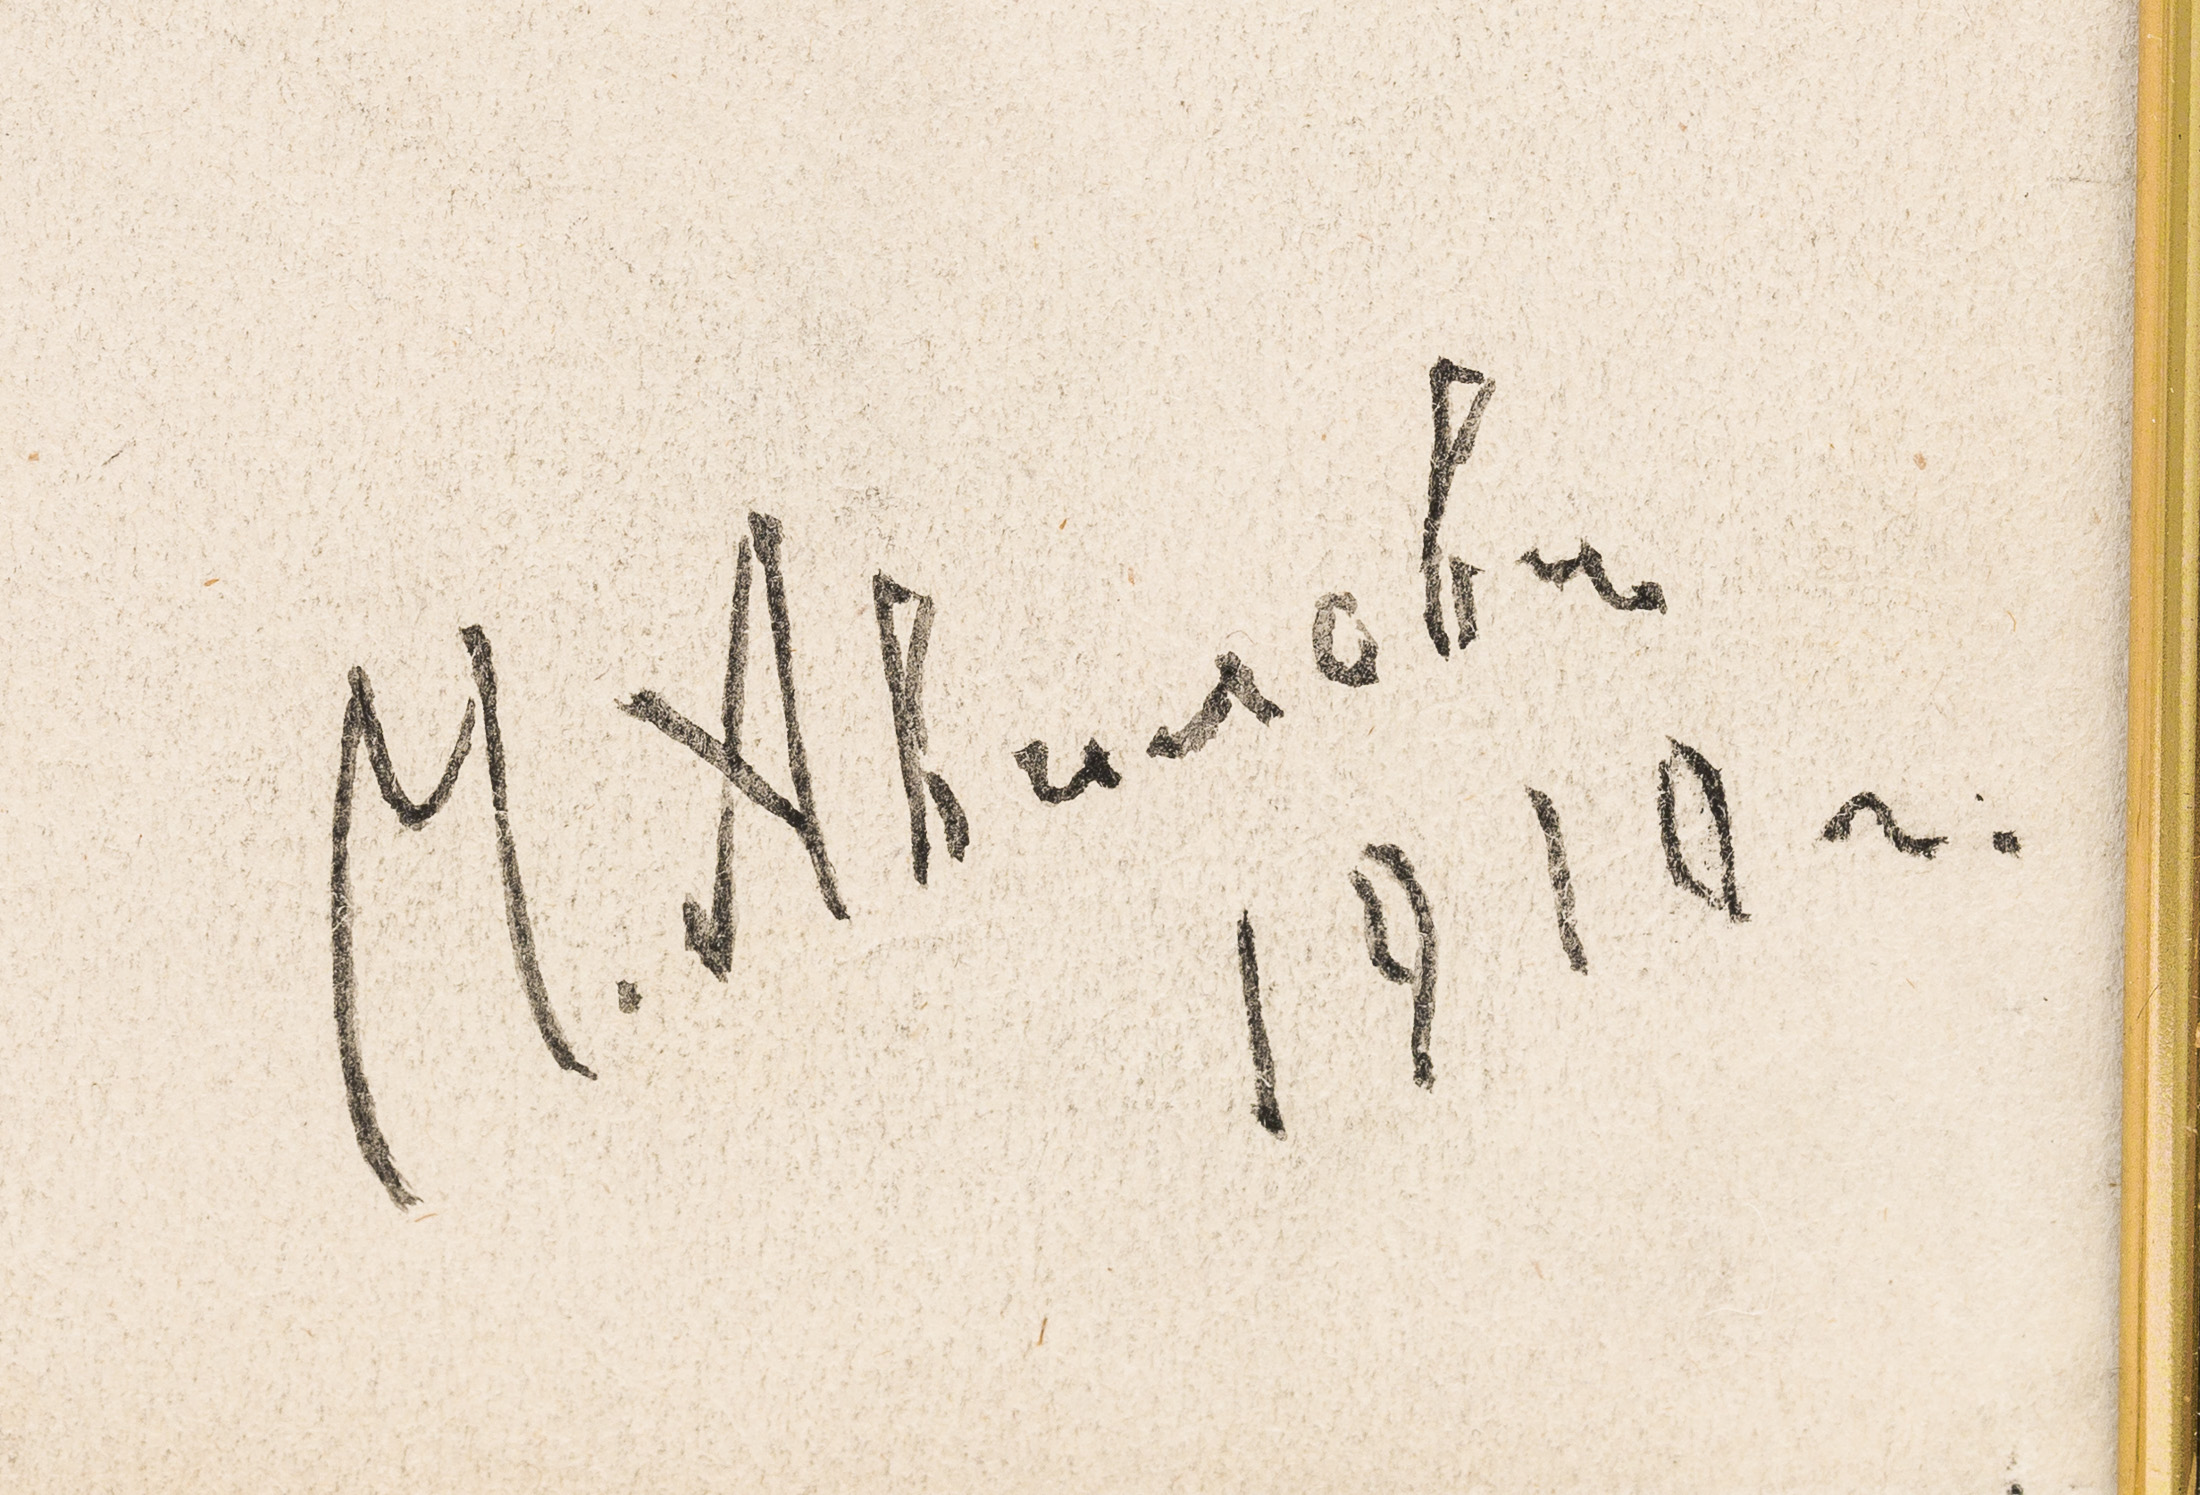 М. Авиловъ
1910 г.